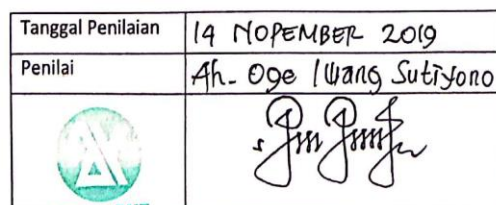 Tanggal Penilaian 14 NOPEMBER 2019
Penilai Ah. Oge Iwang Sutiyono